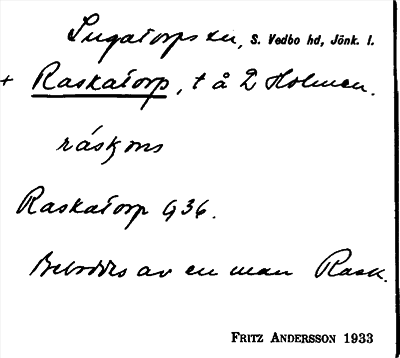 Lugatorps sn, S. Vedbo hd, Jönk. l.
+ Raskatorp, t å 2 Holmen.
Raskatorp G36.
Beboddes av en man Rask.
FRITZ ANDERSSON 1933